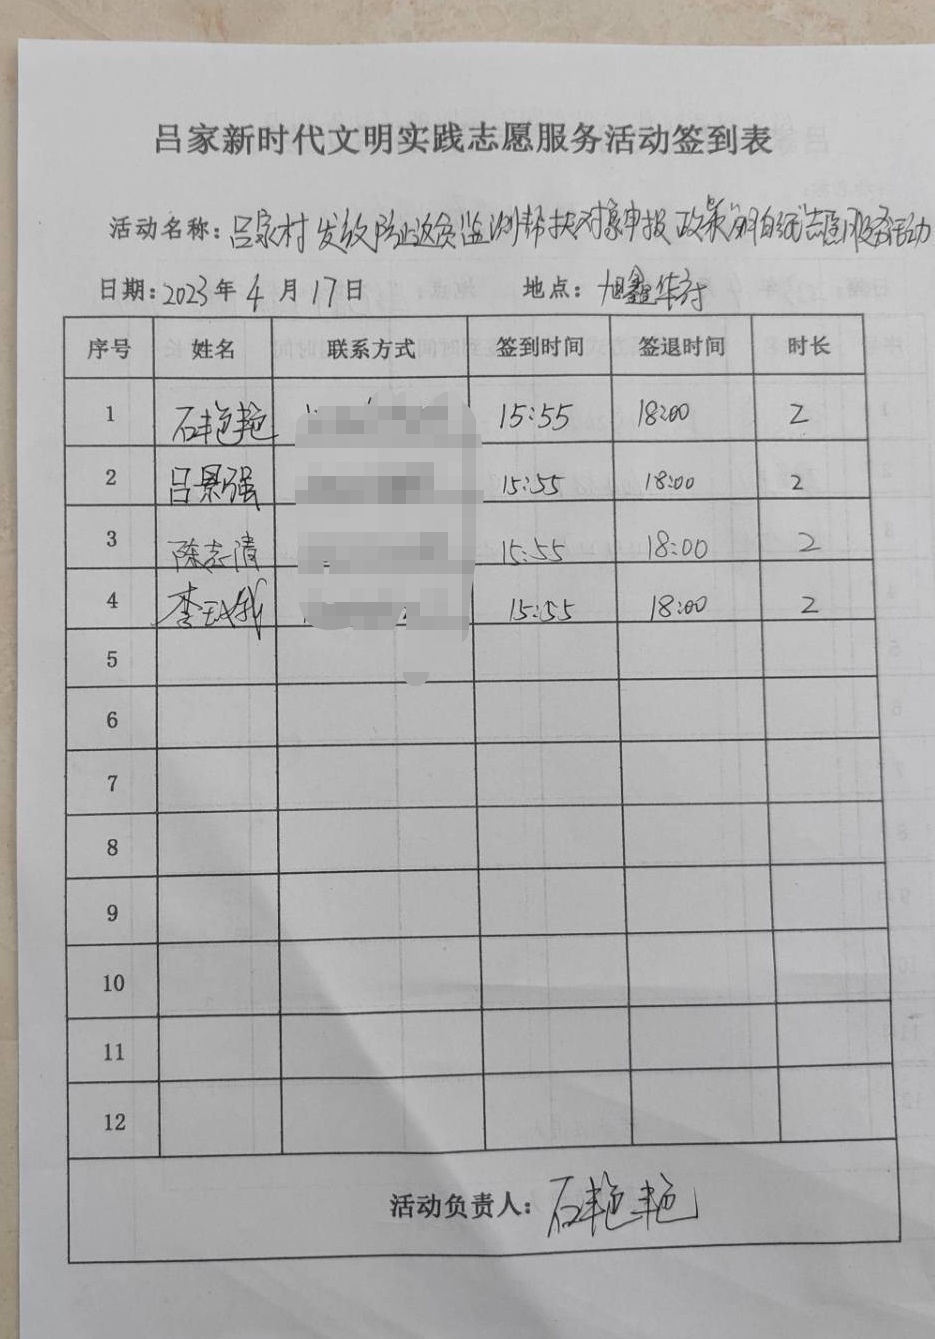 吕家新时代文明实践志愿服务活动签到表
活动名称:吕家村发放防止返贫监测帮扶对象申报政策"明白纸"志愿服务活动
日期:2023年4月17日 地点:旭鑫华府
序号 姓名 联系方式 签到时间 签退时间 时长
1 石艳艳 15:55 18:00 2
2 吕景强 15:55 18:00 2
3 陈志清 15:55 18:00 2
4 李 15:55 18:00 2
5
6
7
8
9
10
11
12
活动负责人:石艳艳